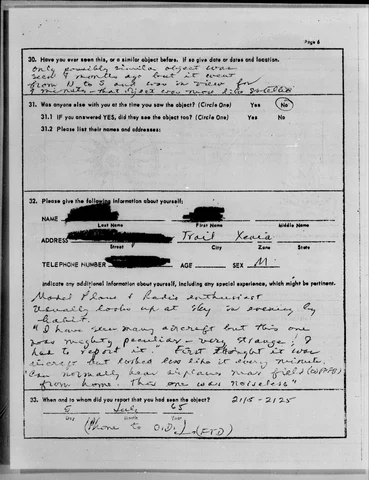 Page 6
30. Have you ever seen this, or a similar object before. If so give date or dates and location.
only possibly similar object was
seen 9 months ago but it went
from N to S and was in view for
9 minutes - that object was more like satellite
31. Was anyone else with you at the time you saw the object? (Circle One) Yes No
31.1 IF you answered YES, did they see the object too? (Circle One) Yes No
31.2 Please list their names and addresses:
32. Please give the following information about yourself:
NAME
Last Name First Name Middle Name
ADDRESS Trail Xenia
Street City Zone State
TELEPHONE NUMBER AGE SEX M
Indicate any additional information about yourself, including any special experience, which might be pertinent.
Model Plane & Radio enthusiast
Usually looks up at sky in evening by
habit.
"I have seen many aircraft but this one
was mighty peculiar - very strange; I
had to report it. First thought it was
aircraft but looked less like it every minute.
"Can normally hear airplanes near field (WPAFB)
from home. This one was noiseless"
33. When and to whom did you report that you had seen the object? 2115-2125
5 July 65
Day Month Year
(Phone to O.D.) (FTD)